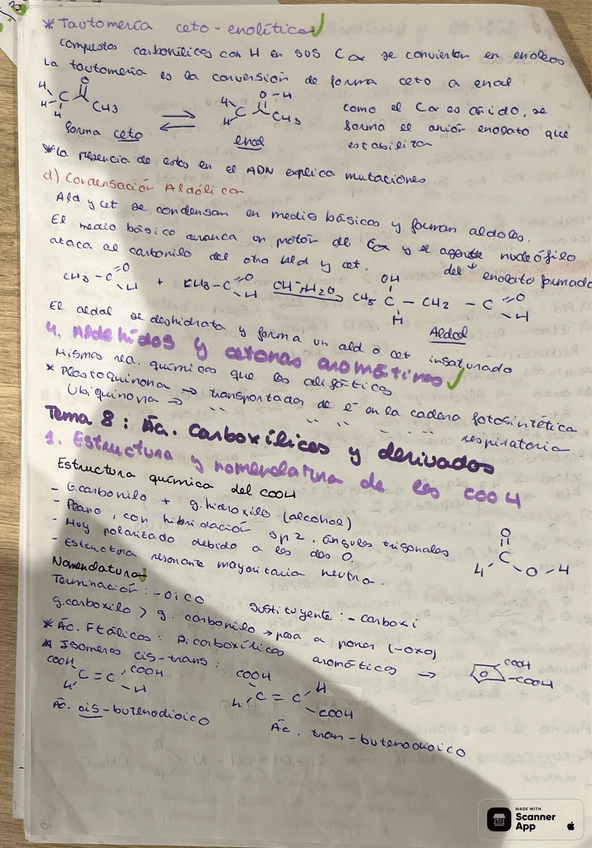 * Tautomería ceto-enolítica
Compuestos carbonílicos con H en sus Cα se convierten en enoles
La tautomería es la conversión de forma ceto a enol
H O
H-C-C CH3
H
forma ceto
O-H
H C=C CH3
H
enol
como el Cα es ácido, se
forma el anión enolato que
estabiliza
* La presencia de estos en el ADN explica mutaciones
d) Condensación Aldólica
Ald y cet se condensan en medio básicos y forman aldoles.
El medio básico arranca un protón del Cα y el agente nucleófilo
ataca al carbonilo del otro ald y cet. del enolato formado
CH3-C=O H + CH3-C=O H OH-, H2O CH3 C OH H - CH2 - C=O H
Aldol
El aldol se deshidrata y forma un ald o cet insaturado
4. Aldehídos y cetonas aromáticos
Mismas rea. químicas que los alifáticos
* Plastoquinona → transportados de é en la cadena fotosintética
Ubiquinona → '' '' '' '' '' respiratoria
Tema 8: Ác. Carboxílicos y derivados
1. Estructura y nomenclatura de los COOH
Estructura química del COOH
- G.carbonilo + g.hidroxilo (alcohol)
- Plano, con hibridación sp2, ángulos trigonales
- Muy polarizado debido a los dos O.
- Estructura resonante mayoritaria neutra.
O
H C O-H
Nomenclatura
Terminación: -oico sustituyente: -carboxi
g.carboxilo > g. carbonilo → pasa a poner (-oxo)
* Ác. Ftálicos: Dicarboxílicos aromáticos → COOH COOH
* Isomeros cis-trans:
COOH COOH
C=C
H H
Ác. cis-butenodioico
COOH H
C=C
H COOH
Ác. tran-butenodioico
MADE WITH
Scanner
App